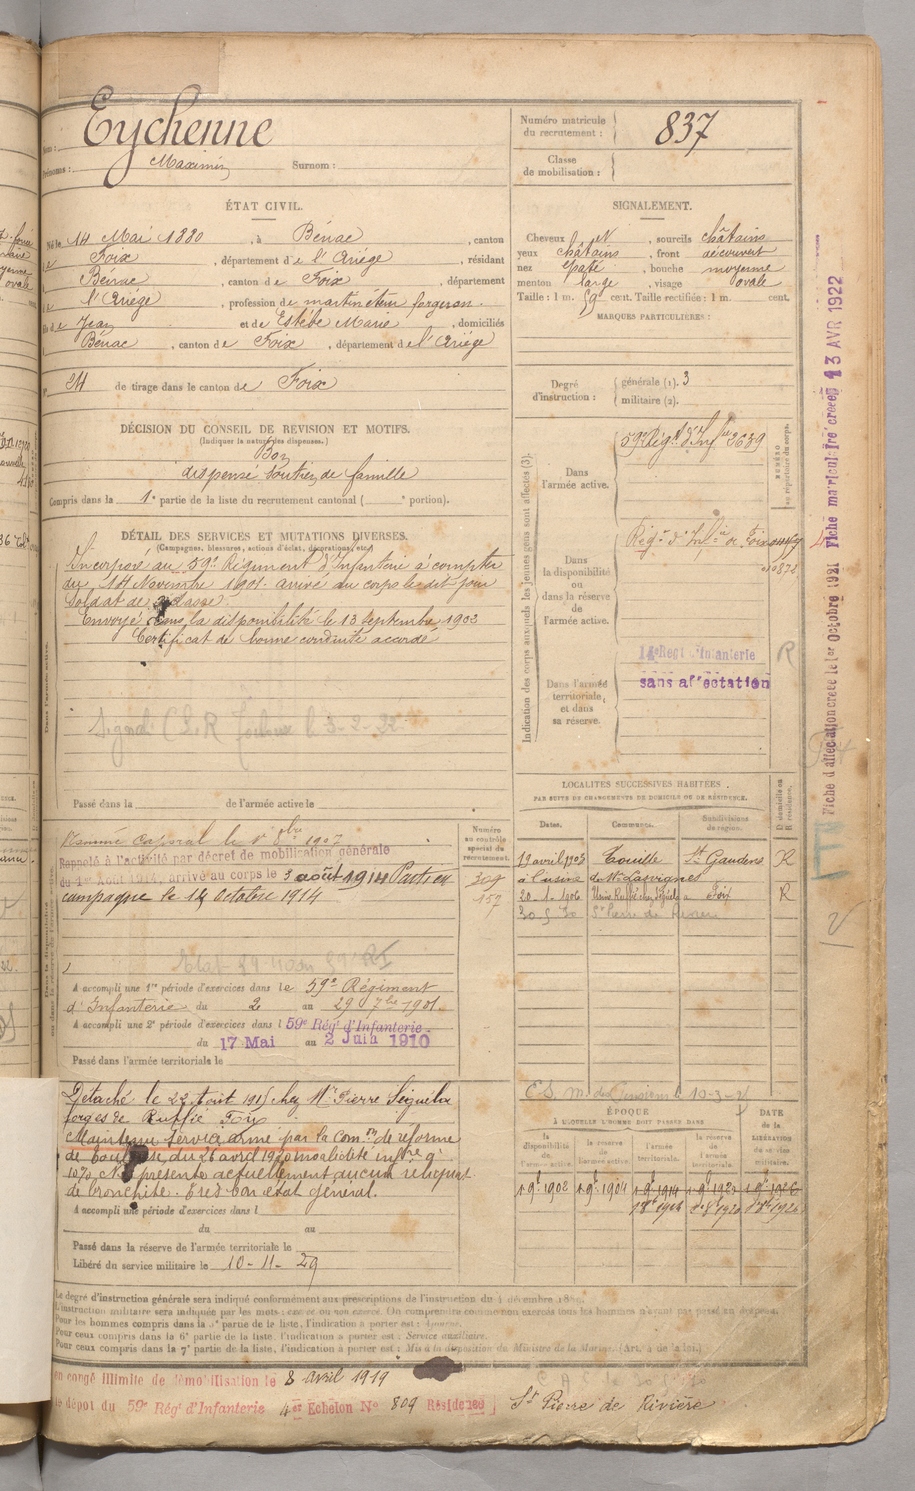 Eychenne
Prénoms : Maximin Surnom :
Numéro matricule du recrutement : 837
Classe de mobilisation :
ÉTAT CIVIL.
Né le 14 Mai 1880, à Bénac, canton
de Foix, département de l'Ariège, résidant
à Bénac, canton de Foix, département
de l'Ariège, profession de martineteur forgeron.
fils de Jean et de Estèbe Marie, domiciliés
à Bénac, canton de Foix, département de l'Ariège
de tirage dans le canton de Foix
SIGNALEMENT.
Cheveux N, sourcils châtains
yeux châtains, front découvert
nez épaté, bouche moyenne
menton large, visage ovale
Taille : 1 m. 59 cent. Taille rectifiée : 1 m. cent.
MARQUES PARTICULIÈRES :
Degré d'instruction : générale (1). 3
militaire (2).
DÉCISION DU CONSEIL DE REVISION ET MOTIFS.
(Indiquer la nature des dispenses.)
Bon
dispensé soutien de famille
Compris dans la 1e partie de la liste du recrutement cantonal ( e portion).
DÉTAIL DES SERVICES ET MUTATIONS DIVERSES.
(Campagnes, blessures, actions d'éclat, décorations, etc.)
Incorporé au 59e Régiment d'Infanterie à compter
du 14 Novembre 1901. arrivé au corps le dit jour
soldat de 2e classe.
Envoyé dans la disponibilité le 13 septembre 1902
Certificat de bonne conduite accordé
Passé dans la de l'armée active le
Indication des corps auxquels les jeunes gens sont affectés (3).
Dans l'armée active.
59e Régt d'Infie 2639
NUMÉRO au répertoire du corps.
Dans la disponibilité ou dans la réserve de l'armée active.
Régt d'Infie de Foix
Dans l'armée territoriale et dans sa réserve.
14e Regt d'Infanterie
sans affectation
R
Fiche d'affectation créée le 1er Octobre 1921 Fiche matriculaire créée 13 AVR 1922
LOCALITÉS SUCCESSIVES HABITÉES
PAR SUITE DE CHANGEMENTS DE DOMICILE OU DE RÉSIDENCE.
Dates. Communes. Subdivisions de région. D domicile ou R résidence.
19 avril 1903 Touille St Gaudens R
à l'usine de Mr Lasvignes
20-1-1906 Foix R
St Pierre de Rivière
Numéro au contrôle spécial du recrutement.
157
Nommé Caporal le
Rappelé à l'activité par décret de mobilisation générale
du 1er Août 1914, arrivé au corps le 3 août 1914 Parti en
campagne le 14 Octobre 1914
A accompli une 1re période d'exercices dans le 59e Régiment
d'Infanterie du 2 au 29
A accompli une 2e période d'exercices dans l 59e Régt d'Infanterie.
du 17 Mai au 2 Juin 1910
Passé dans l'armée territoriale le
Détaché le 22 Août 1915 chez Mr Pierre Seiguela
forges de Ruffié Foix
Maintenu service armé par la Comon de réforme
de Toulouse du 26 avril 1920 invalidité infre à
10%. Ne présente actuellement aucun reliquat
de bronchite. Très bon état général.
A accompli une période d'exercices dans l
du au
Passé dans la réserve de l'armée territoriale le
Libéré du service militaire le 10-11-29
ÉPOQUE
À LAQUELLE L'HOMME DOIT PASSER DANS
la disponibilité de l'armée active. la réserve de l'armée active. l'armée territoriale. la réserve de l'armée territoriale.
DATE de la LIBÉRATION du service militaire.
1 9bre 1902 1 9bre 1904 1 9bre 1914
Le degré d'instruction générale sera indiqué conformément aux prescriptions de l'instruction du
L'instruction militaire sera indiquée par les mots : exercé ou non exercé. On comprendra comme non exercés tous les hommes n'ayant pas passé au drapeau.
Pour les hommes compris dans la 5e partie de la liste, l'indication à porter est : Ajourné.
Pour ceux compris dans la 6e partie de la liste, l'indication à porter est : Service auxiliaire.
Pour ceux compris dans la 7e partie de la liste, l'indication à porter est : Mis à la disposition du Ministre de la Marine.
en congé illimité de démobilisation le 8 avril 1919
le dépôt du 59e Régt d'Infanterie 4er Echelon No 809 Résidence St Pierre de Rivière